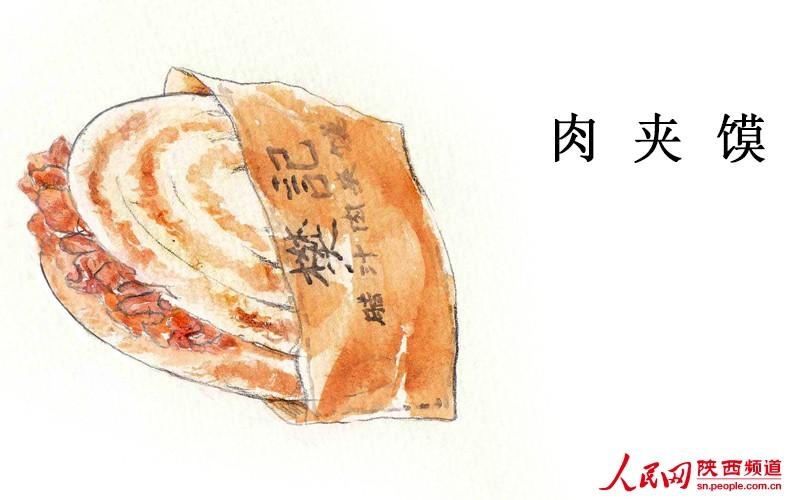 肉夹馍
樊記
腊汁肉夹馍
人民网 陕西频道
sn.people.com.cn